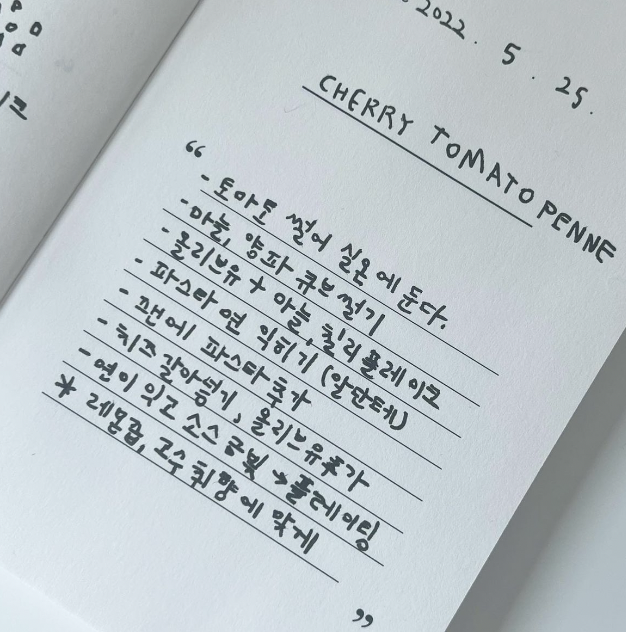 2022. 5. 25.
CHERRY TOMATO PENNE
“
- 토마토 썰어 실온에 둔다.
- 마늘, 양파 큐브썰기
- 올리브유 + 마늘, 칠리플레이크
- 파스타면 익히기 (알단테)
- 팬에 파스타 추가
- 치즈 갈아넣기, 올리브유 추가
- 면이 익고 소스 금빛 → 플레이팅
* 레몬즙, 고수 취향에 맞게
”